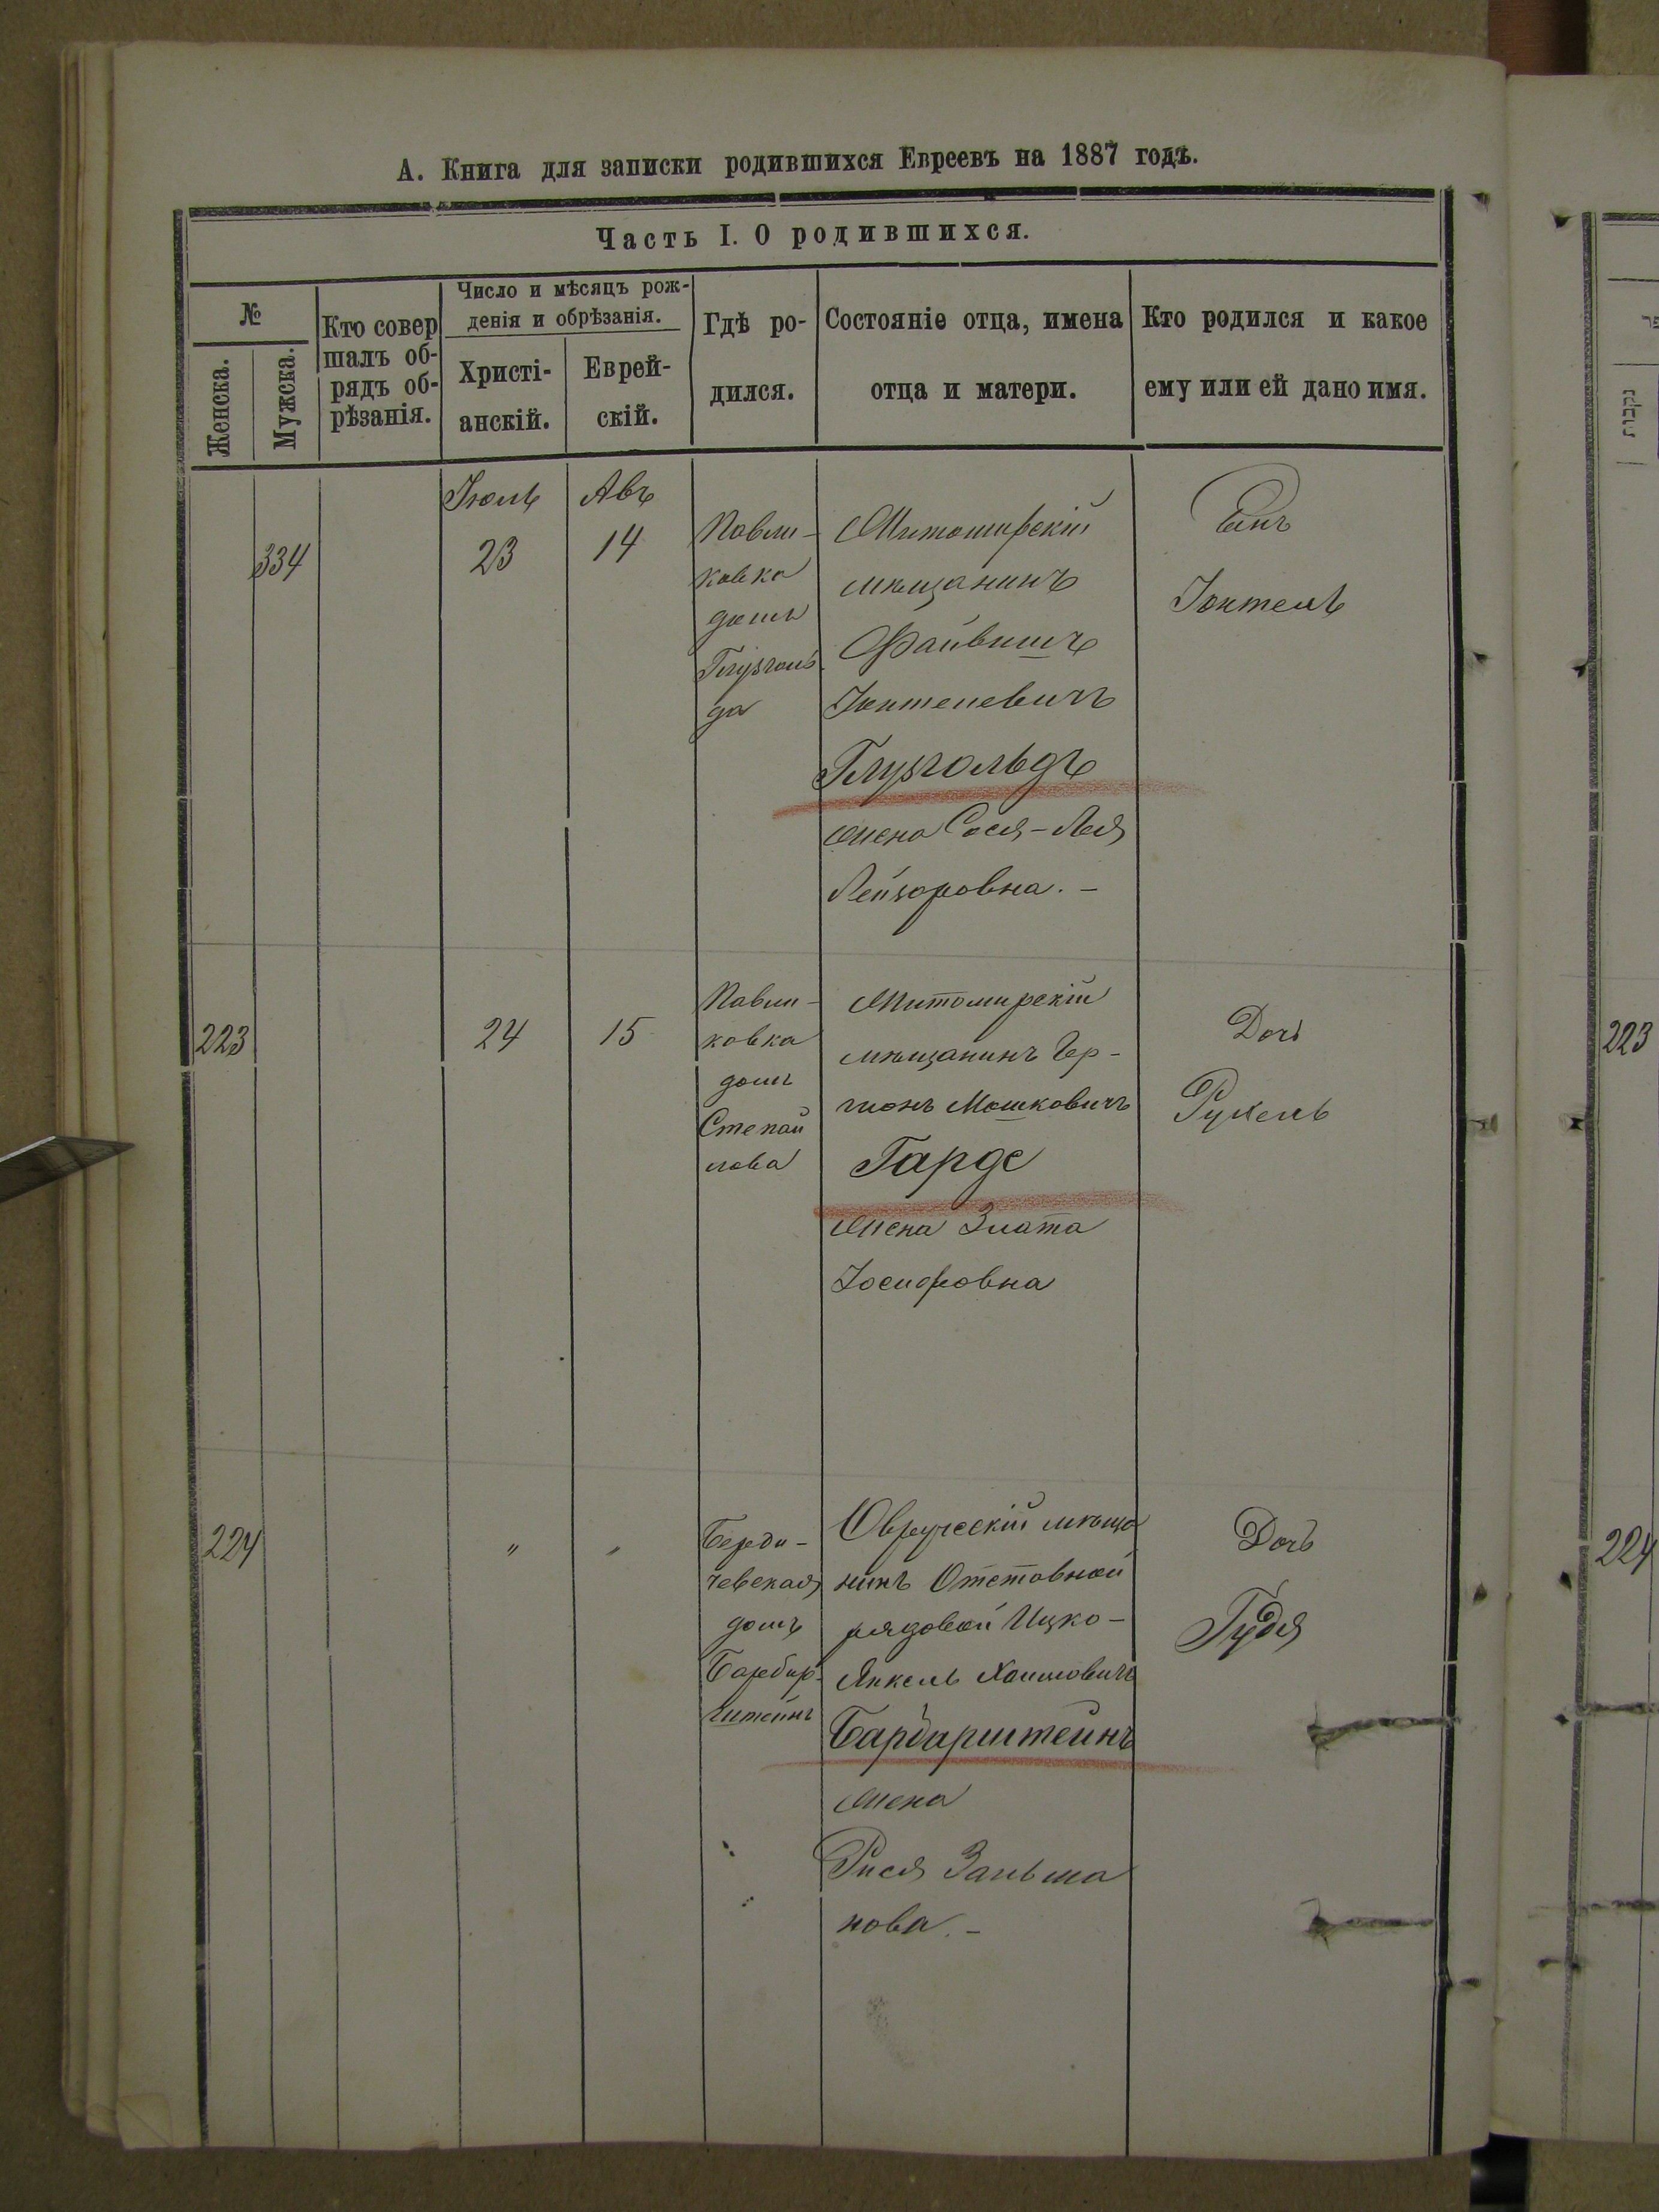 А. Книга для записки родившихся Евреевъ на 1887 годъ.
Часть I. О родившихся.
№
Женска.
Мужска.
Кто совер
шалъ об-
рядъ об-
рѣзанія.
Число и мѣсяцъ рож-
денія и обрѣзанія.
Христі-
анскій.
Еврей-
скій.
Гдѣ ро-
дился.
Состояніе отца, имена
отца и матери.
Кто родился и какое
ему или ей дано имя.
334
Іюль
23
Авъ
14
Павли-
ковка
домъ
Глузголь
да
Житомирскій
мѣщанинъ
Файвишъ
Іонтелевичъ
Глузгольдъ
жена Сося-Лея
Лейзоровна.-
Сынъ
Іонтель
223
24
15
Павли-
ковка
домъ
Житомирскій
мѣщанинъ Гер-
шонъ Мошковичъ
Гарде
жена Злата
Іосифовна
Дочь
Рухель
224
"
"
Берди-
чевская
домъ
Барбар-
штейнъ
Овручскій мѣща
нинъ Отставной
рядовой Ицко-
Янкель Хаимовичъ
Барбарштейнъ
жена
Рися Зельма
нова.-
Дочь
Гудя
נקבות
223
224